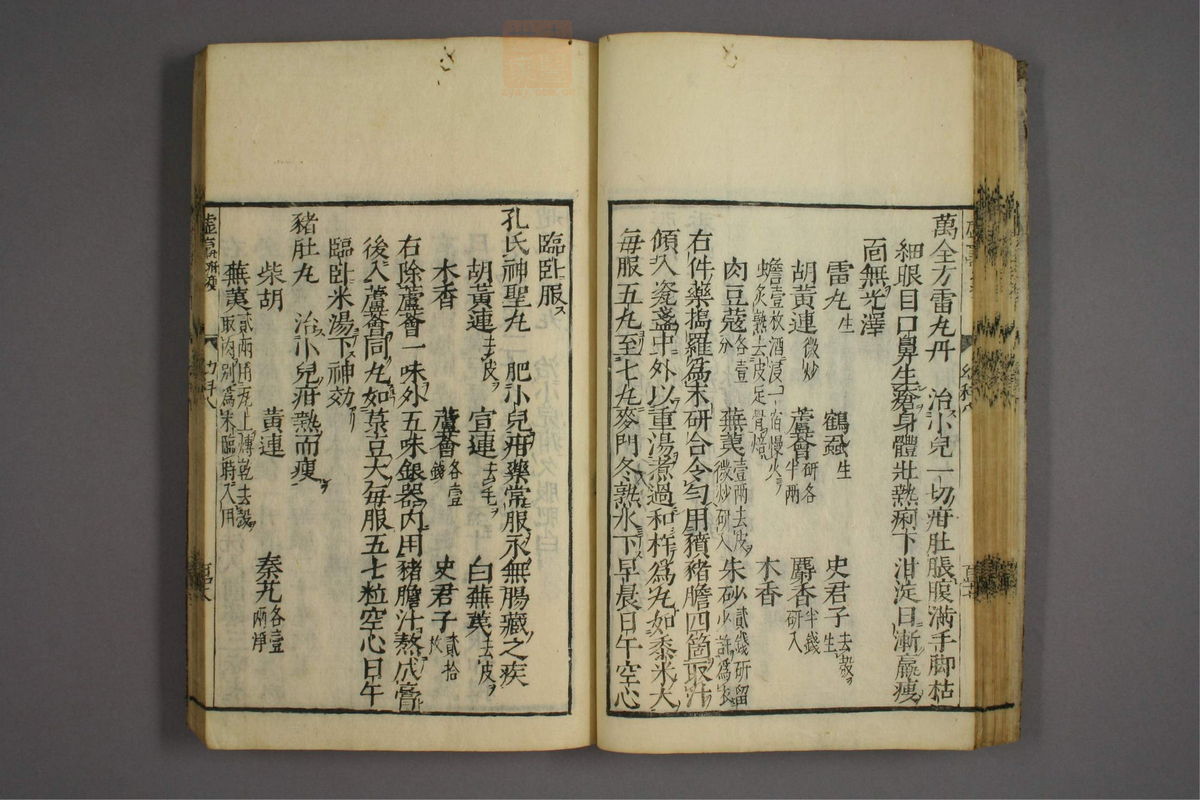 萬全方雷丸丹　治小兒一切疳肚脹腹滿手脚枯
細眼目口鼻生瘡身體壯熱痢下泔淀日漸羸瘦
面無光澤
雷丸生　鶴蝨生　史君子去殼生
胡黃連微炒　蘆薈研各半兩　麝香半錢研入
蟾壹枚酒浸一宿慢火炙熟去皮足骨焙　木香
肉豆蔻各壹分　蕪荑壹兩去皮微炒研入　朱砂貳錢研留少許爲衣
右件藥搗羅爲末研合令勻用豶豬膽四箇取汁
傾入瓷盞中外以重湯煮過和杵爲丸如黍米大
每服五丸至七丸麥門冬熟水下早晨日午空心
臨臥服ス
孔氏神聖丸　肥小兒疳藥常服永無腸藏之疾
胡黃連去皮　宣連去毛　白蕪荑去皮
木香　蘆薈各壹錢　史君子貳拾枚
右除蘆薈一味外五味銀器內用豬膽汁熬成膏
後入蘆薈同丸如菉豆大每服五七粒空心日午
臨臥米湯下神効
豬肚丸　治小兒疳熱而瘦
柴胡　黃連　秦艽各壹兩淨
蕪荑貳兩用瓦上煿乾去殼取肉別爲末臨時入用